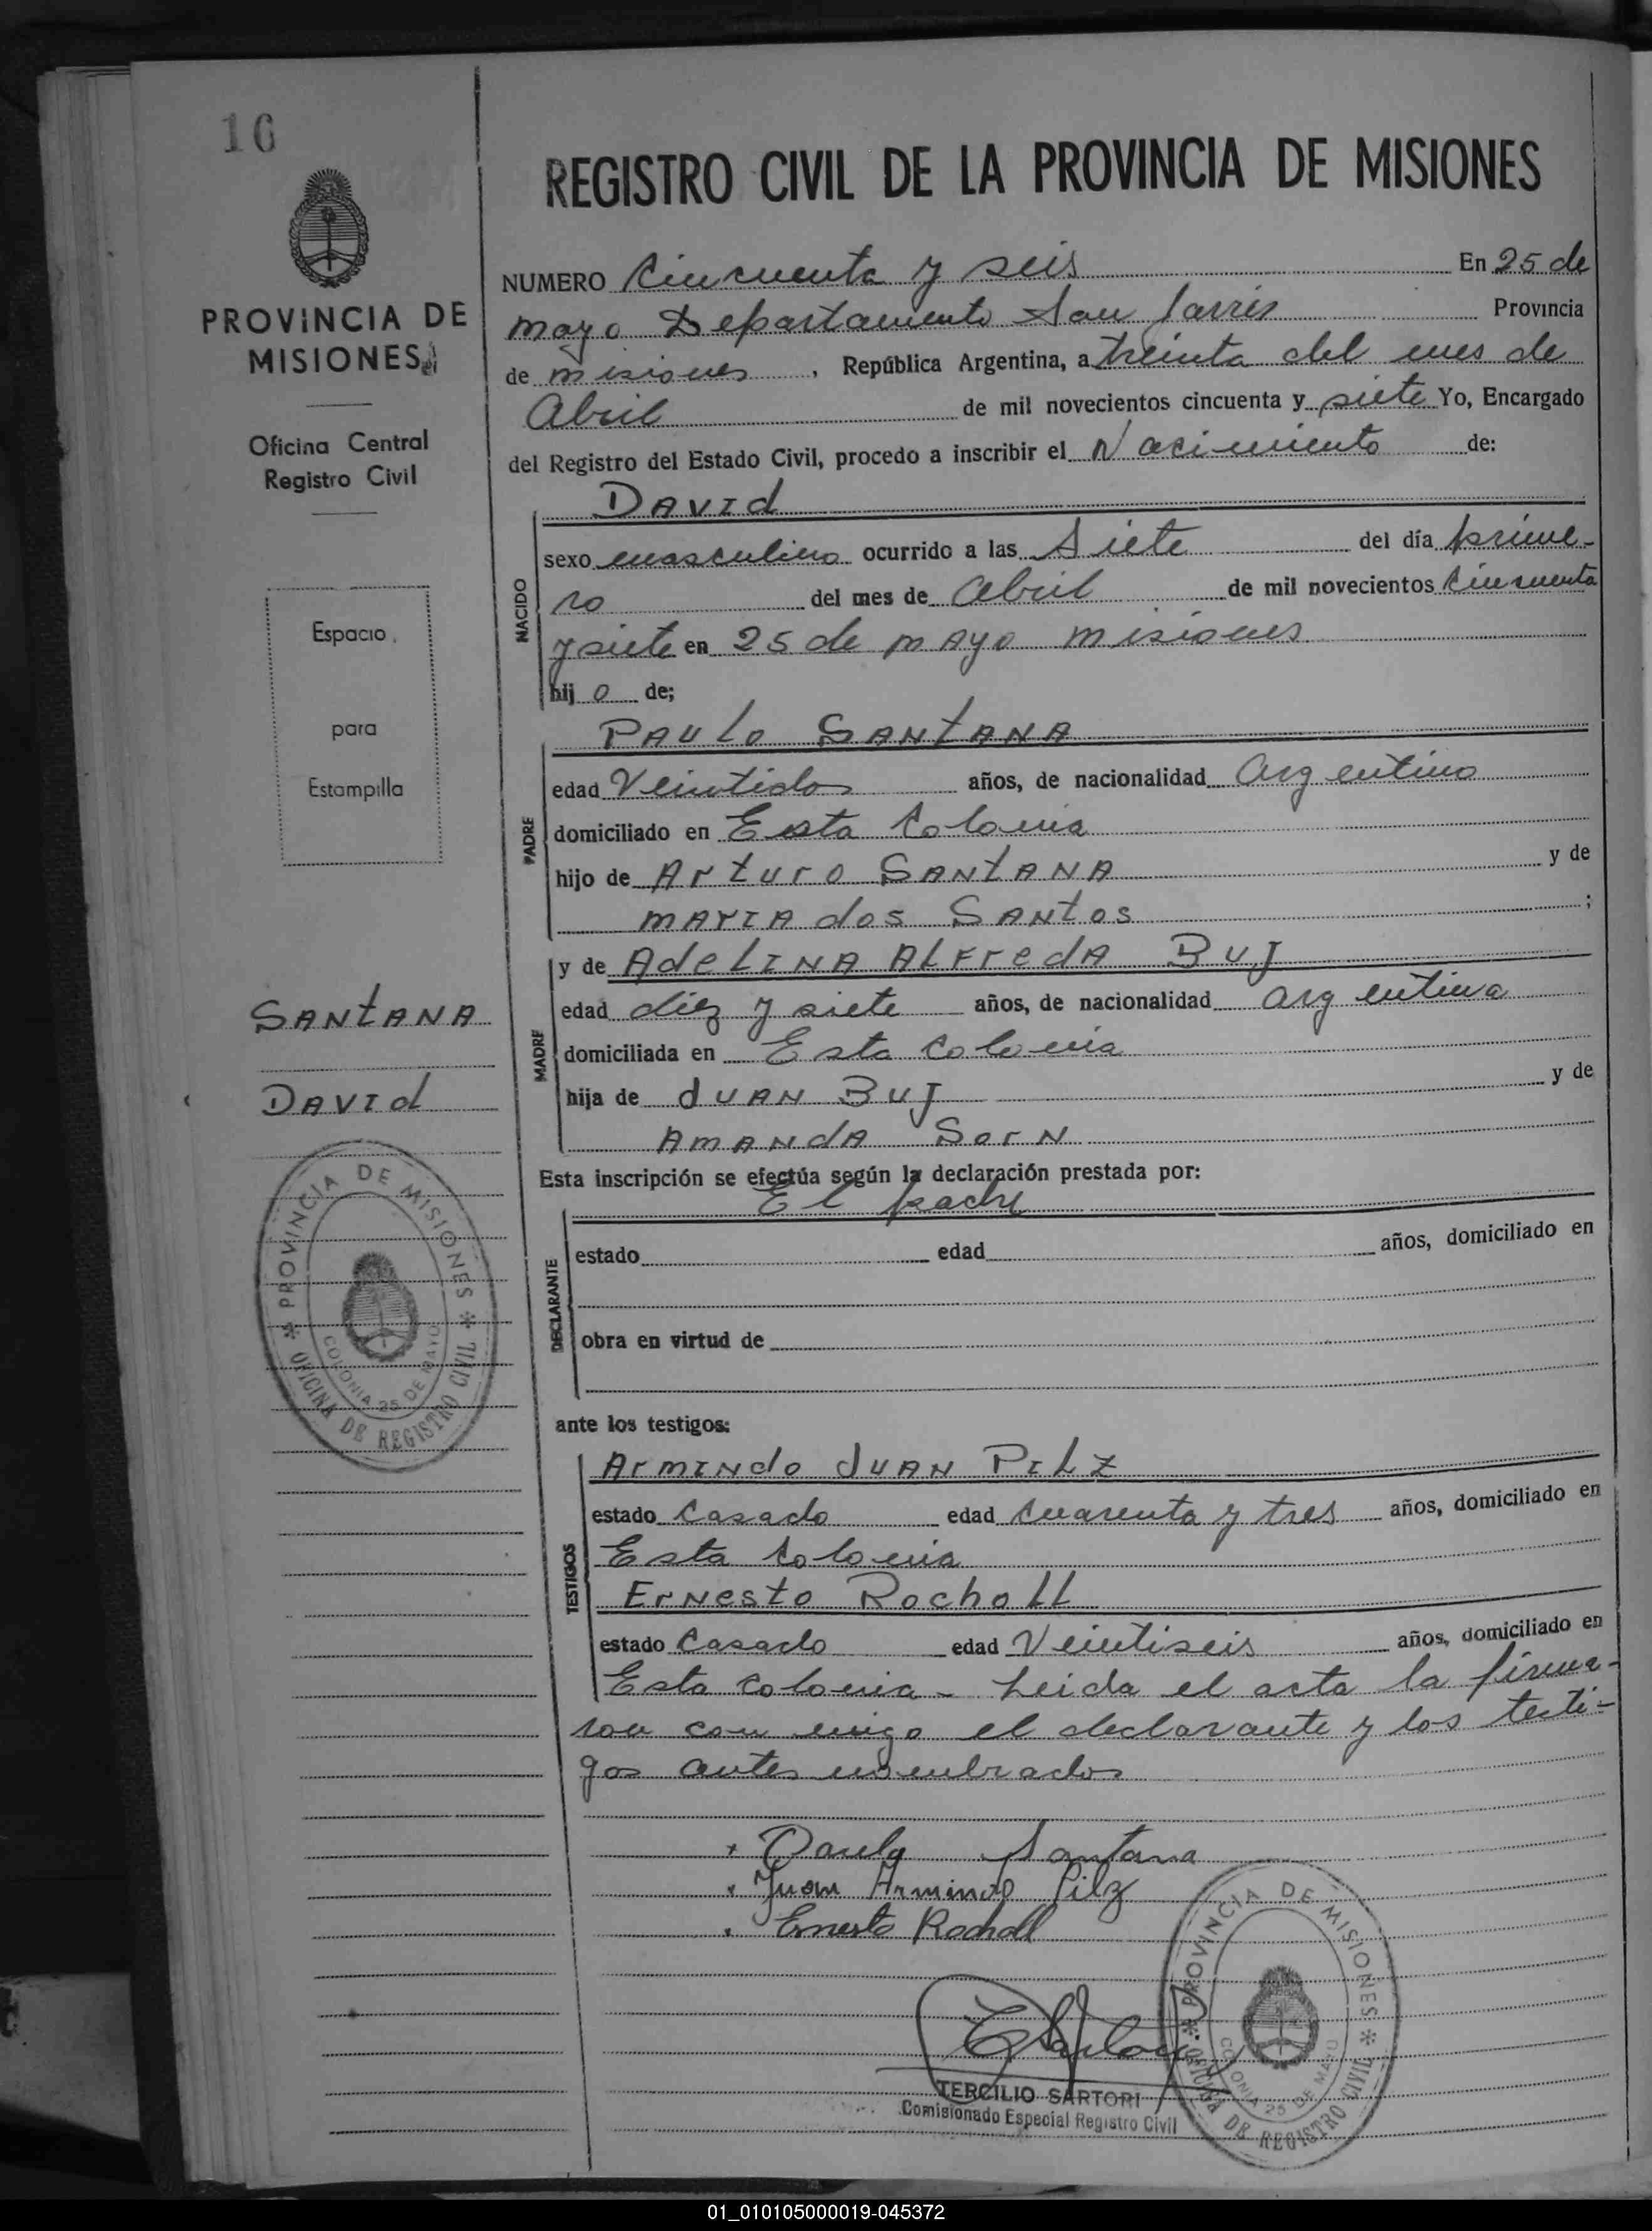 16
PROVINCIA DE
MISIONES
Oficina Central
Registro Civil
Espacio
para
Estampilla
SANTANA
DAVId
PROVINCIA DE MISIONES
OFICINA DE REGISTRO CIVIL
COLONIA 25 DE MAYO
REGISTRO CIVIL DE LA PROVINCIA DE MISIONES
NUMERO Cincuenta y seis En 25 de
mayo Departamento San Javier Provincia
de misiones, República Argentina, a treinta del mes de
Abril de mil novecientos cincuenta y siete Yo, Encargado
del Registro del Estado Civil, procedo a inscribir el Nacimiento de:
DAVId
NACIDO
sexo masculino ocurrido a las Siete del día prime-
ro del mes de Abril de mil novecientos Cincuenta
y siete en 25 de mayo misiones
hijo de;
PAULO SANTANA
PADRE
edad Veintidos años, de nacionalidad Argentino
domiciliado en Esta Colonia
hijo de Arturo SANTANA y de
MARIA dos SANTOS ;
y de AdeLINA ALFredA BUJ
MADRE
edad diez y siete años, de nacionalidad Argentina
domiciliada en Esta Colonia
hija de JUAN BUJ y de
AMANdA SorN
Esta inscripción se efectúa según la declaración prestada por:
El padre
DECLARANTE
estado edad años, domiciliado en
obra en virtud de
ante los testigos:
ArmINdo JUAN PILZ
TESTIGOS
estado Casado edad Cuarenta y tres años, domiciliado en
Esta Colonia
ErNesto RochoLL
estado Casado edad Veintiseis años, domiciliado en
Esta Colonia - Leida el acta la firma-
ron con migo el declarante y los testi-
gos antes nombrados
Paulo Santana
Juan Armindo Pilz
Ernesto Rocholl
TERCILIO SARTORI
Comisionado Especial Registro Civil
PROVINCIA DE MISIONES
OFICINA DE REGISTRO CIVIL
COLONIA 25 DE MAYO
01_010105000019-045372